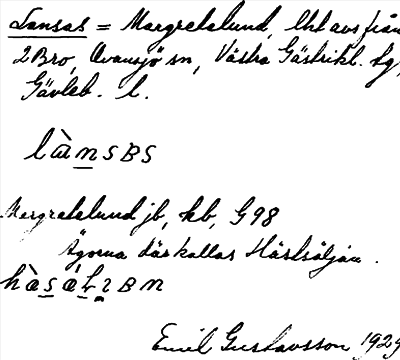 Lansas = Margretelund, lht avs från
2 Bro, Ovansjö sn, Västra Gästrikl. tg,
Gävleb. l.
lànsBs
Margretelund jb, kb, G98
Ägorna där kallas Hästsäljan.
Emil Gustavsson 1929